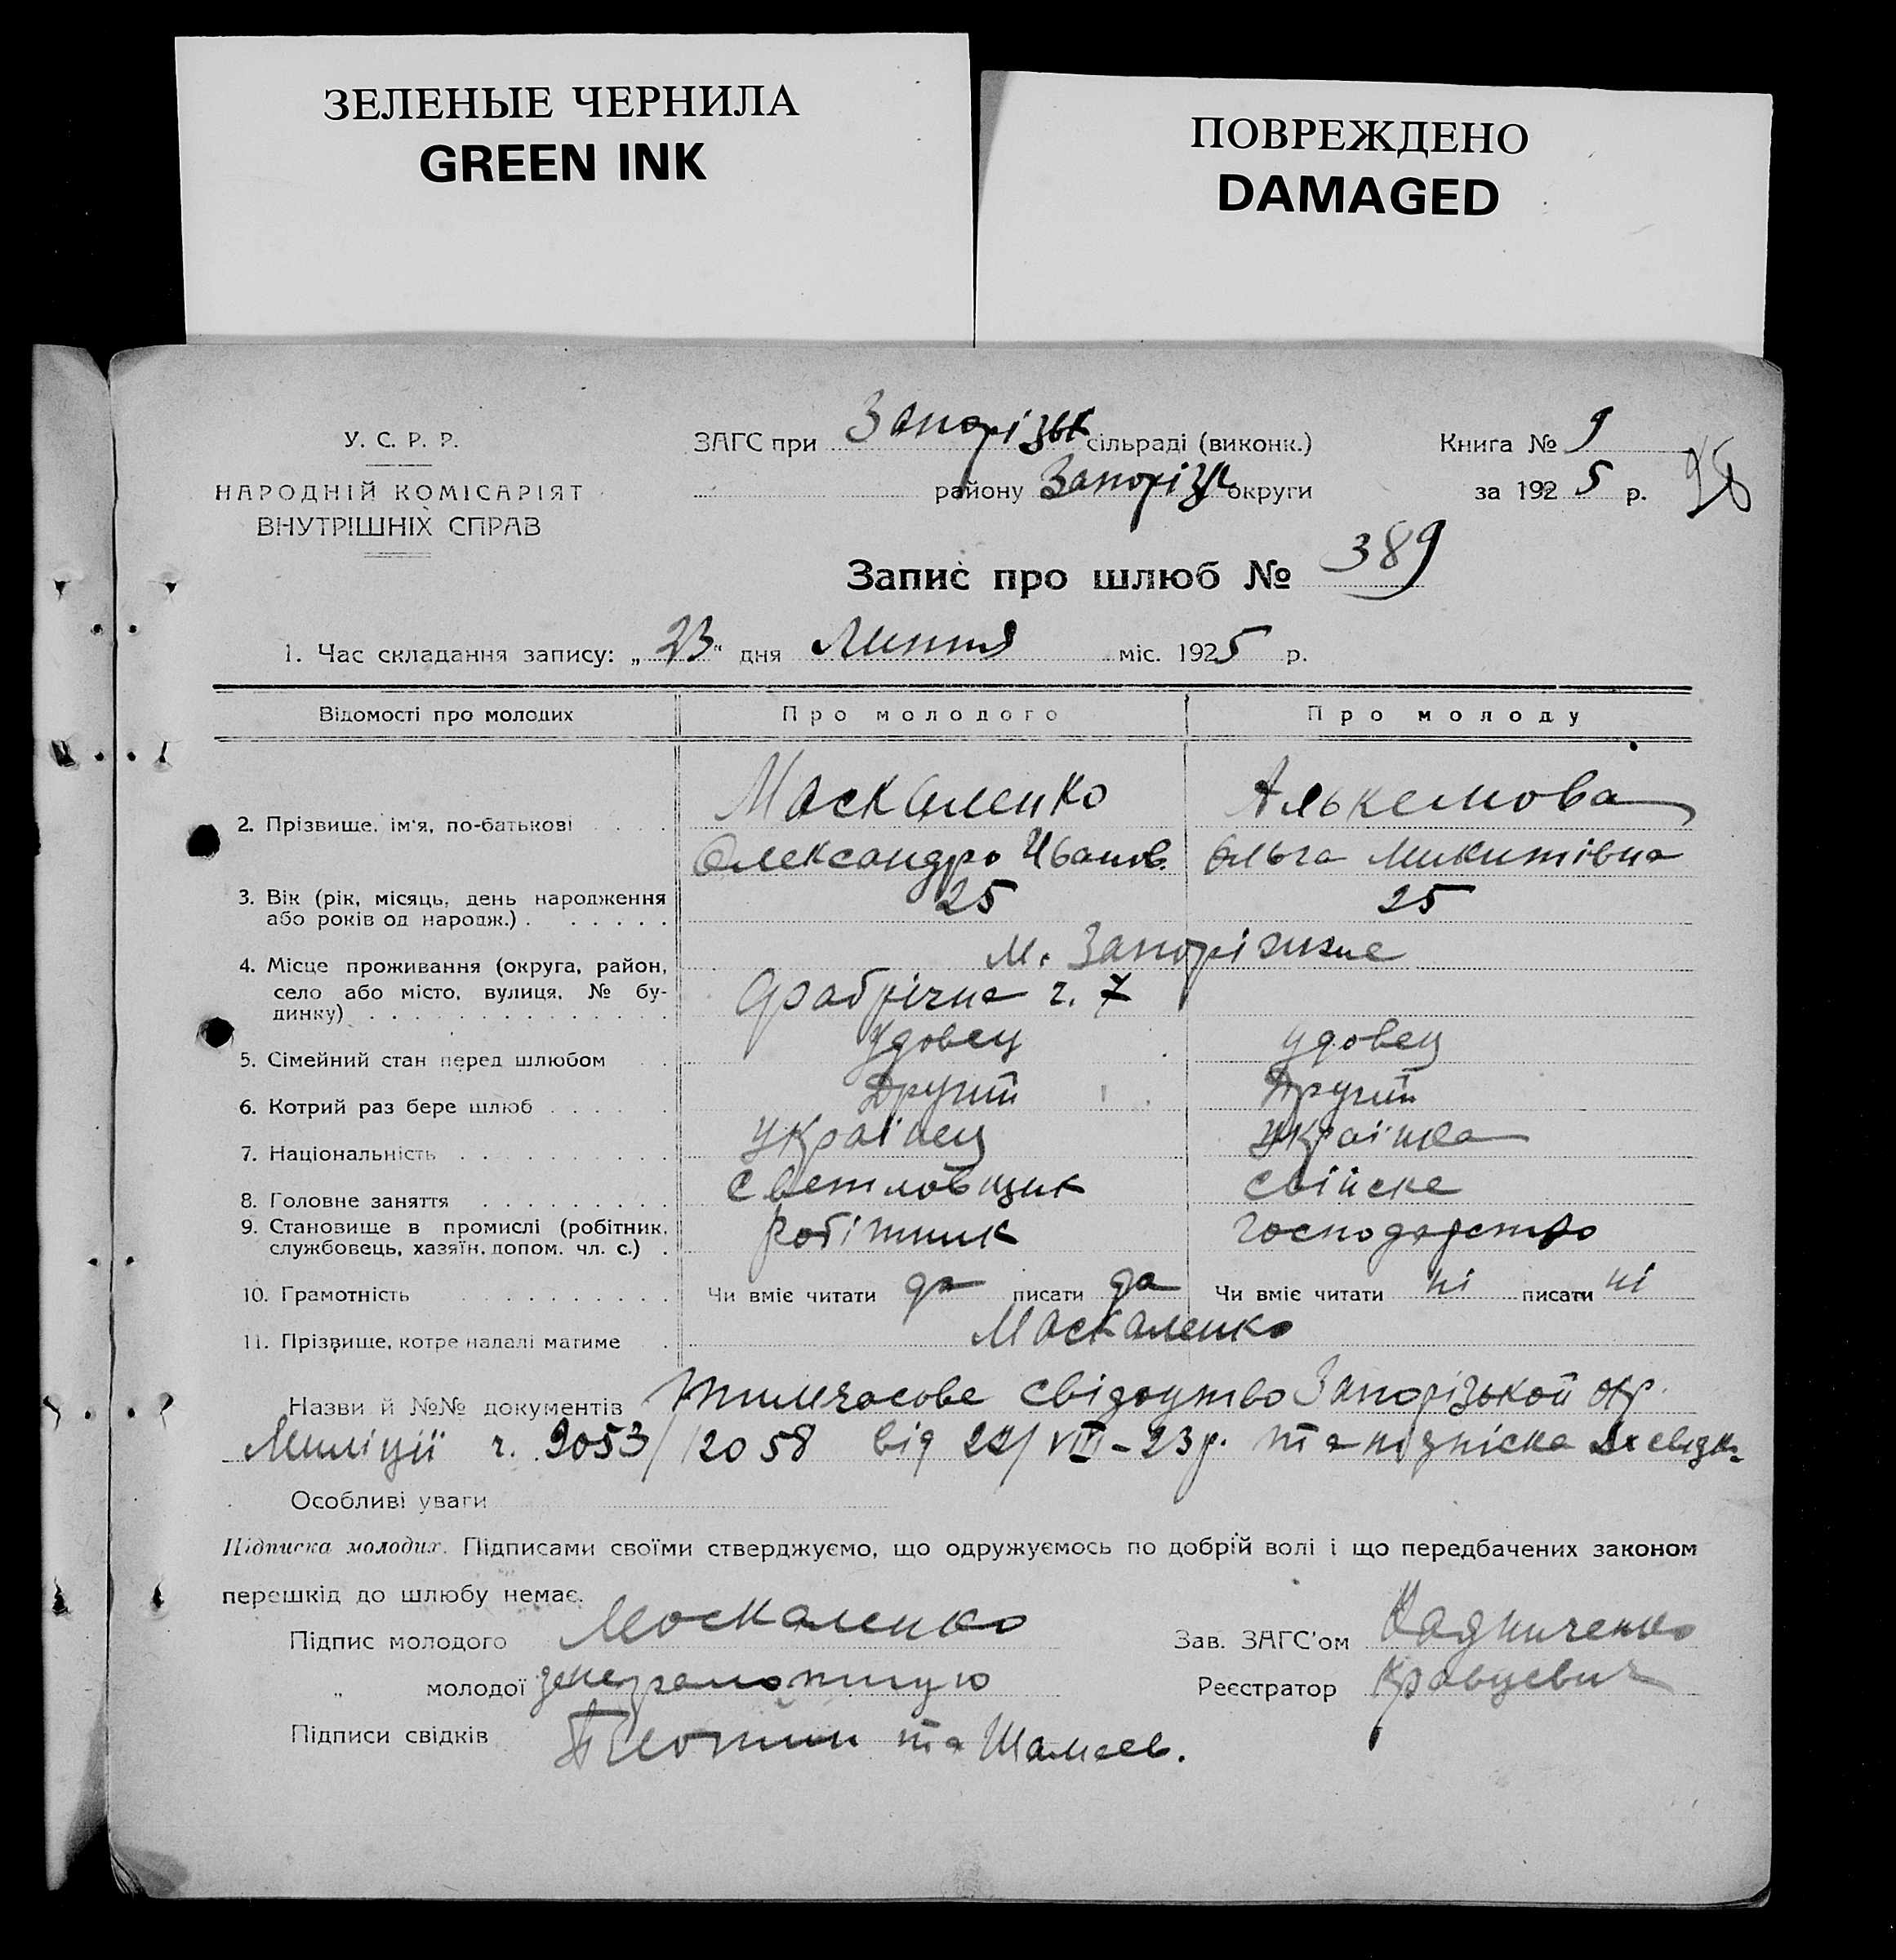 ЗЕЛЕНЫЕ ЧЕРНИЛА
GREEN INK
ПОВРЕЖДЕНО
DAMAGED
У. С. Р. Р.
НАРОДНІЙ КОМІСАРІЯТ
ВНУТРІШНІХ СПРАВ
ЗАГС при Запорізьк сільраді (виконк.)
району Запорізк округи
Книга № 9
за 1925 р.
Запис про шлюб № 389
1. Час складання запису: „23“ дня Липня міс. 1925 р.
Відомості про молодих Про молодого Про молоду
2. Прізвище, ім'я, по-батькові . . . . Маскаленко Алькемова
Олександр Иванов. Ольга Микитівна
3. Вік (рік, місяць, день народження або років од народж.) . . . . . . 25 25
4. Місце проживання (округа, район, село або місто, вулиця, № будинку) . . . м. Запоріжже
Фабрічна ч. 7
5. Сімейний стан перед шлюбом Удовец удовец
6. Котрий раз бере шлюб . . . . . Другий Другий
7. Національність . . . . . . . . . . Українец Українка
8. Головне заняття . . . . . . . . . Светловщик Свійске
9. Становище в промислі (робітник, службовець, хазяїн, допом. чл. с.) . Робітник Господарство
10. Грамотність . . . . . . . . . . Чи вміє читати да писати да Чи вміє читати ні писати ні
11. Прізвище, котре надалі матиме . Маскаленко
Назви й №№ документів тимчасове свідоцтво Запорізькой окр.
Миліції ч. 9053/12058 від 22/VIII-23р. та підпіска
Особливі уваги
Підписка молодих. Підписами своїми стверджуємо, що одружуємось по добрій волі і що передбачених законом
перешкід до шлюбу немає.
Підпис молодого Москаленко
Зав. ЗАГС'ом
„ молодої за неграмотную
Реєстратор Кравцевич
Підписи свідків та